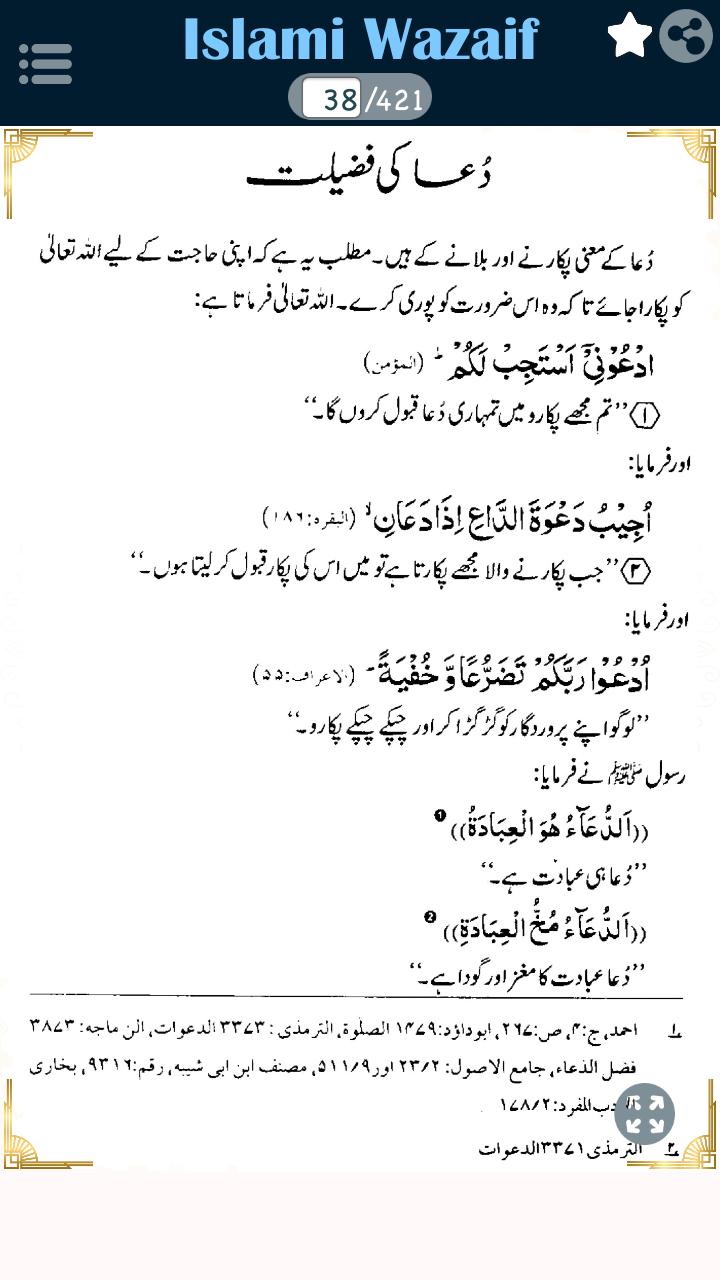 Islami Wazaif
38/421
دُعا کی فضیلت
دُعا کے معنی پکارنے اور بلانے کے ہیں۔ مطلب یہ ہے کہ اپنی حاجت کے لیے اللہ تعالیٰ
کو پکارا جائے تاکہ وہ اس ضرورت کو پوری کرے۔ اللہ تعالیٰ فرماتا ہے:
ادْعُوْنِیْۤ اَسْتَجِبْ لَكُمْ ؕ (المؤمن)
۱ ’’تم مجھے پکارو میں تمہاری دُعا قبول کروں گا۔‘‘
اور فرمایا:
اُجِیْبُ دَعْوَةَ الدَّاعِ اِذَا دَعَانِ ۙ (البقرہ:۱۸۶)
۲ ’’جب پکارنے والا مجھے پکارتا ہے تو میں اس کی پکار قبول کر لیتا ہوں۔‘‘
اور فرمایا:
اُدْعُوْا رَبَّكُمْ تَضَرُّعًا وَّ خُفْیَةً ؕ (الاعراف:۵۵)
’’لوگو اپنے پروردگار کو گڑگڑا کر اور چپکے چپکے پکارو۔‘‘
رسول ﷺ نے فرمایا:
((اَلدُّعَآءُ هُوَ الْعِبَادَةُ)) 1
’’دُعا ہی عبادت ہے۔‘‘
((اَلدُّعَآءُ مُخُّ الْعِبَادَةِ)) 2
’’دُعا عبادت کا مغز اور گودا ہے۔‘‘
۱ احمد، ج:۴، ص:۲۶۷، ابوداؤد:۱۴۷۹ الصلٰوة، الترمذی: ۳۳۷۳ الدعوات، الن ماجه: ۳۸۷۳
فضل الدعاء، جامع الاصول: ۲۳/۲ اور ۵۱۱/۹، مصنف ابن ابی شیبه، رقم:۹۳۱۶، بخاری
دب المفرد:۱۷۸/۲
۲ الترمذی ۳۳۷۱ الدعوات